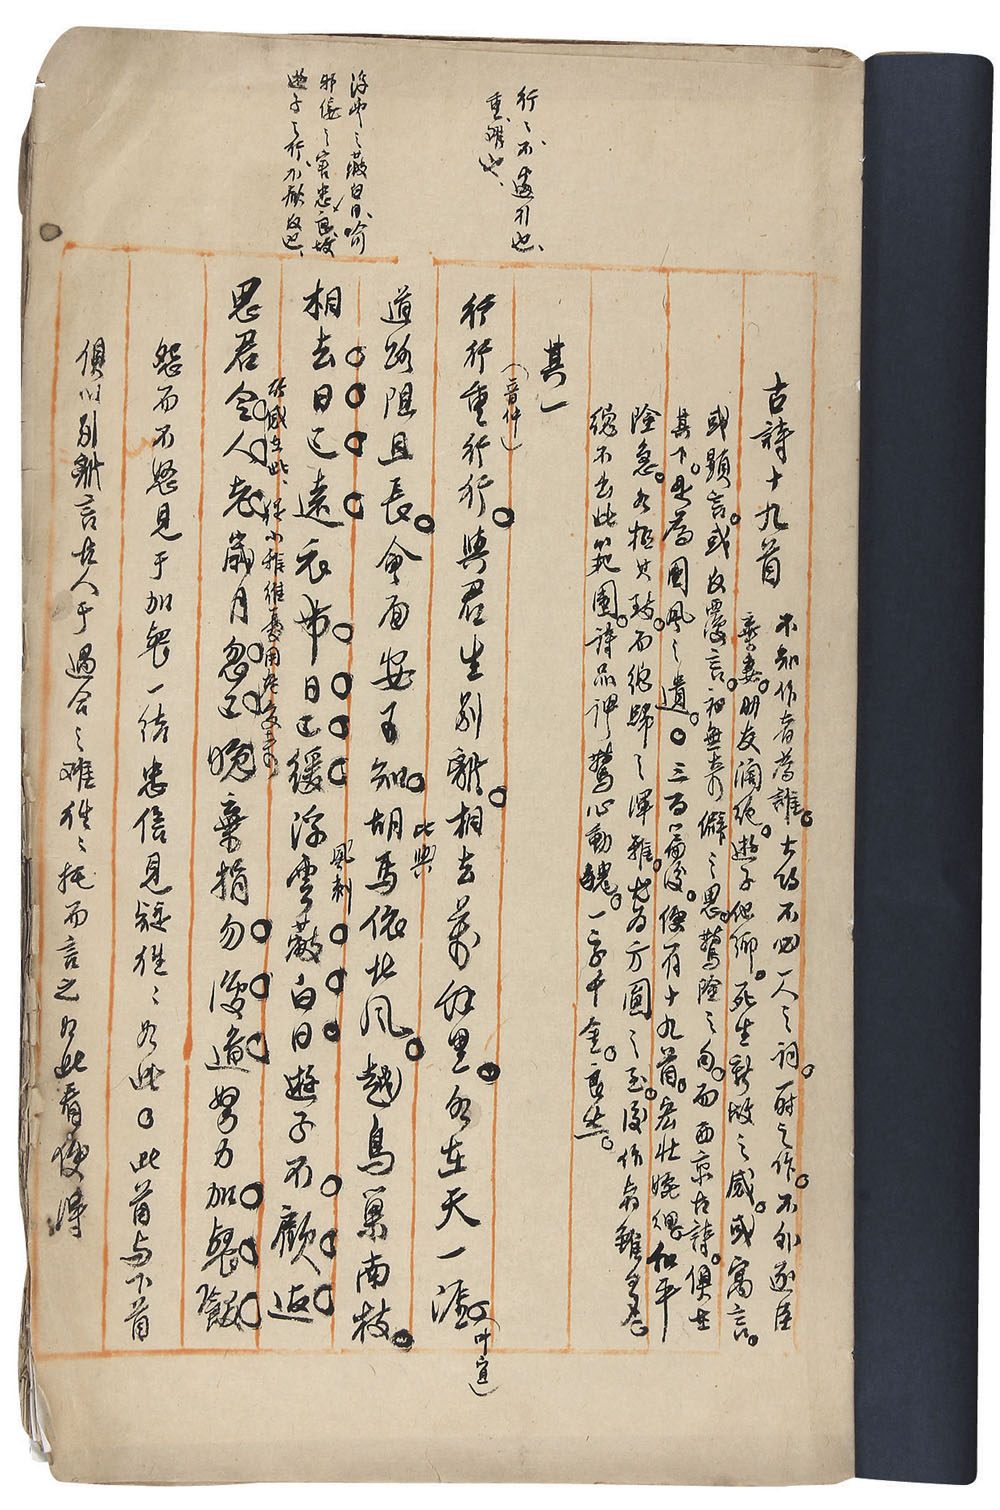 行〻不遠引也、
重增也、
浮雲之蔽白日、喻
邪佞之害忠良、故
遊子之行、不顧反已、
古詩十九首
不知作者為誰。大約不必一人之詞。一時之作。不外逐臣
棄妻。朋友濶絶。遊子他鄉。死生新故之感。或寓言。
或顯言。或反覆言。初無奇僻之思。驚險之句。而西京古詩。俱在
其下。是為國風之遺。○三百篇後。便有十九首。宏壯婉細和平
險急。各極其致。而總歸之渾雅。允為方圓之至。後作者雖多。
總不出此範圍。詩品謂驚心動魄。一字千金。良然。
其一
行行重行行。與君生別離。相去萬餘里。各在天一涯（叶宜）
（音仲）
道路阻且長。會面安可知。胡馬依北風。越鳥巢南枝。
比興
相去日已遠衣帶日已緩浮雲蔽白日遊子不顧返
風刺
思君令人老歲月忽已晚棄捐勿復道努力加餐飯
所感在此、從小雅維憂用老變来
怨而不怒見于加餐一結忠信見疑往〻如此日此首与下首
俱以別離言古人于遇合之难往〻托而言之如此看便得